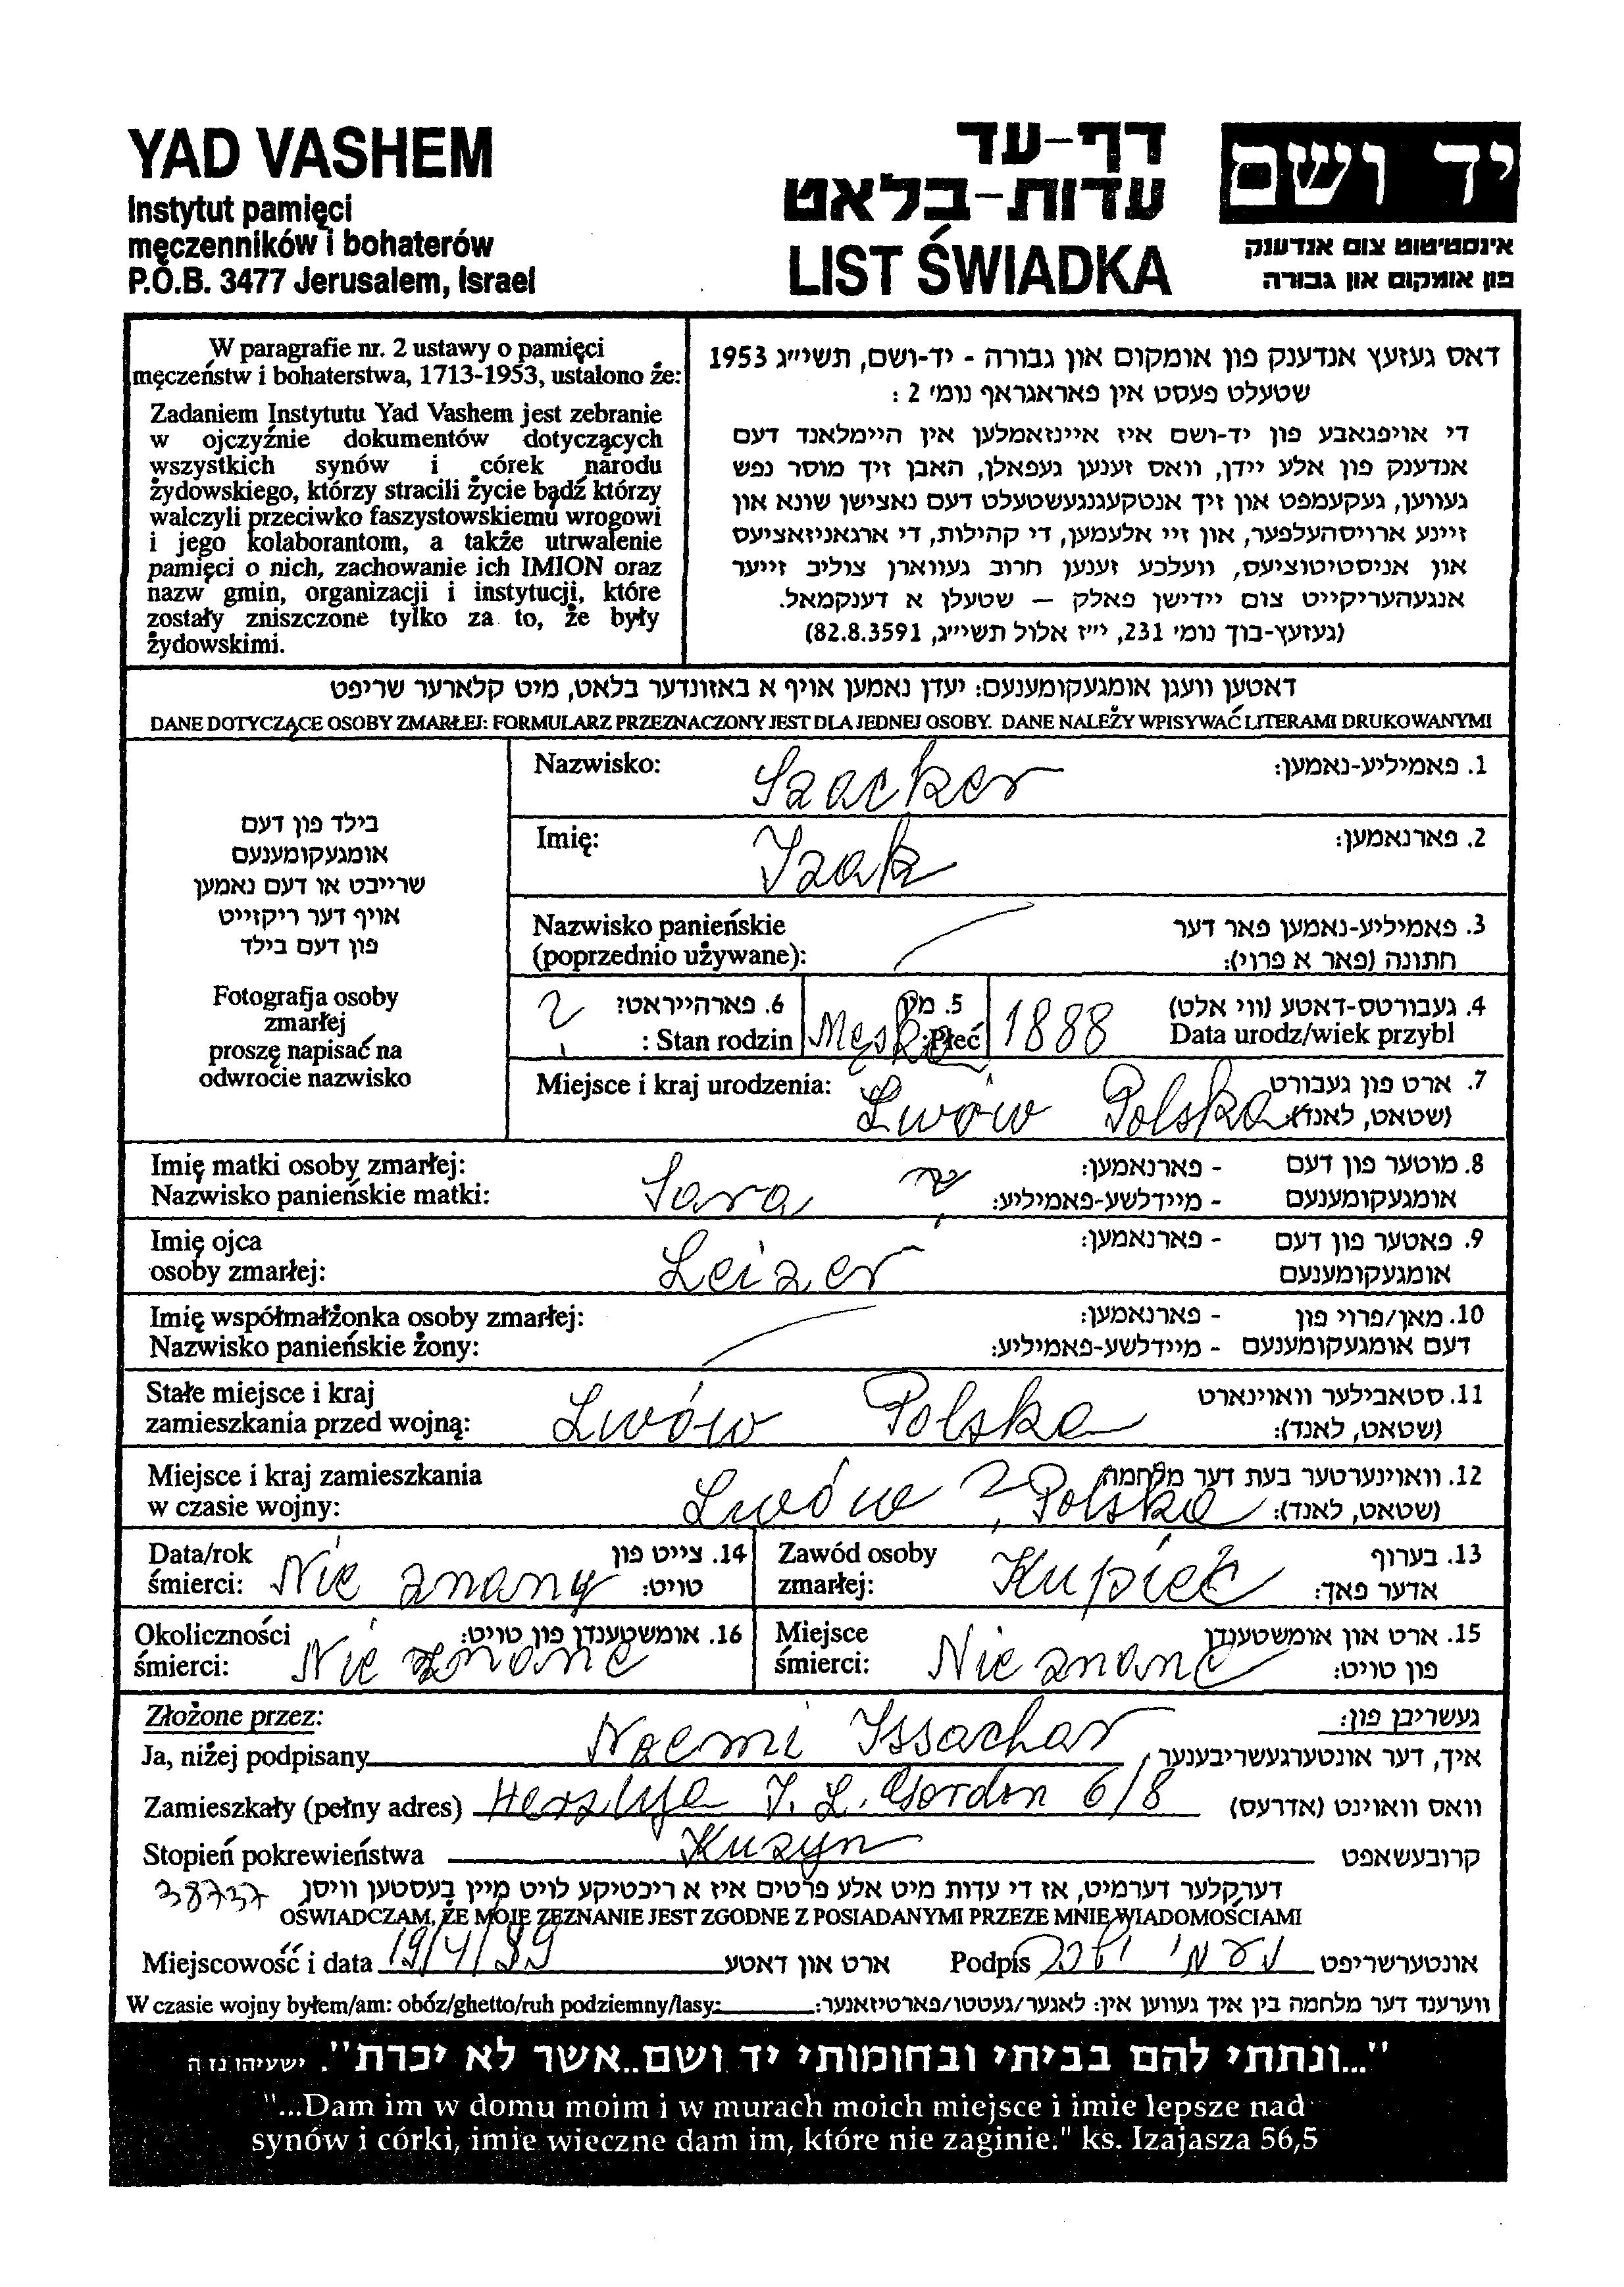 YAD VASHEM
Instytut pamięci
męczenników i bohaterów
P.O.B. 3477 Jerusalem, Israel
דף-עד
עדות-בלאט
LIST ŚWIADKA
יד ושם
אינסטיטוט צום אנדענק
פון אומקום און גבורה
W paragrafie nr. 2 ustawy o pamięci
męczeństw i bohaterstwa, 1713-1953, ustalono że:
Zadaniem Instytutu Yad Vashem jest zebranie
w ojczyźnie dokumentów dotyczących
wszystkich synów i córek narodu
żydowskiego, którzy stracili życie bądź którzy
walczyli przeciwko faszystowskiemu wrogowi
i jego kolaborantom, a także utrwalenie
pamięci o nich, zachowanie ich IMION oraz
nazw gmin, organizacji i instytucji, które
zostały zniszczone tylko za to, że były
żydowskimi.
דאס געזעץ אנדענק פון אומקום און גבורה - יד-ושם, תשי״ג 1953
שטעלט פעסט אין פאראגראף נומ׳ 2 :
די אויפגאבע פון יד-ושם איז איינזאמלען אין היימלאנד דעם
אנדענק פון אלע יידן, וואס זענען געפאלן, האבן זיך מוסר נפש
געווען, געקעמפט און זיך אנטקעגנגעשטעלט דעם נאצישן שונא און
זיינע ארויסהעלפער, און זיי אלעמען, די קהילות, די ארגאניזאציעס
און אניסטיטוציעס, וועלכע זענען חרוב געווארן צוליב זייער
אנגעהעריקייט צום יידישן פאלק – שטעלן א דענקמאל.
(געזעץ-בוך נומ׳ 231, י״ז אלול תשי״ג, 82.8.3591)
דאטען וועגן אומגעקומענעם: יעדן נאמען אויף א באזונדער בלאט, מיט קלארער שריפט
DANE DOTYCZĄCE OSOBY ZMARŁEJ: FORMULARZ PRZEZNACZONY JEST DLA JEDNEJ OSOBY. DANE NALEŻY WPISYWAĆ LITERAMI DRUKOWANYMI
בילד פון דעם
אומגעקומענעם
שרייבט או דעם נאמען
אויף דער ריקזייט
פון דעם בילד
Fotografja osoby
zmarłej
proszę napisać na
odwrocie nazwisko
Nazwisko: Szacker 1. פאמיליע-נאמען:
Imię: Izak 2. פארנאמען:
Nazwisko panieńskie 3. פאמיליע-נאמען פאר דער
(poprzednio używane): חתונה (פאר א פרוי):
? 6. פארהייראט? 5. מין 1888 4. געבורטס-דאטע (ווי אלט)
: Stan rodzin Męska :Płeć Data urodz/wiek przybl
Miejsce i kraj urodzenia: Lwów Polska 7. ארט פון געבורט
(שטאט, לאנד):
Imię matki osoby zmarłej: Sara ? - פארנאמען: 8. מוטער פון דעם
Nazwisko panieńskie matki: - מיידלשע-פאמיליע: אומגעקומענעם
Imię ojca Leizer - פארנאמען: 9. פאטער פון דעם
osoby zmarłej: אומגעקומענעם
Imię współmałżonka osoby zmarłej: - פארנאמען: 10. מאן/פרוי פון
Nazwisko panieńskie żony: - מיידלשע-פאמיליע: דעם אומגעקומענעם
Stałe miejsce i kraj 11. סטאבילער וואוינארט
zamieszkania przed wojną: Lwów Polska (שטאט, לאנד):
Miejsce i kraj zamieszkania 12. וואוינערטער בעת דער מלחמה
w czasie wojny: Lwów ? Polska (שטאט, לאנד):
Data/rok 14. צייט פון Zawód osoby 13. בערוף
śmierci: Nie znany טויט: zmarłej: Kupiec אדער פאך:
Okoliczności 16. אומשטענדן פון טויט: Miejsce 15. ארט און אומשטענדן
śmierci: Nie znane śmierci: Nie znane פון טויט:
Złożone przez: געשריבן פון:
Ja, niżej podpisany Noemi Issachar איך, דער אונטערגעשריבענער,
Zamieszkały (pełny adres) Herzlija J. L. Gordon 6/8 וואס וואוינט (אדרעס)
Stopień pokrewieństwa Kuzyn קרובעשאפט
38737 דערקלער דערמיט, אז די עדות מיט אלע פרטים איז א ריכטיקע לויט מיין בעסטען וויסן
OŚWIADCZAM, ŻE MOJE ZEZNANIE JEST ZGODNE Z POSIADANYMI PRZEZE MNIE WIADOMOŚCIAMI
Miejscowość i data 19/4/99 ארט און דאטע Podpis נעמי יששכר אונטערשריפט
W czasie wojny byłem/am: obóz/ghetto/ruh podziemny/lasy: ווערענד דער מלחמה בין איך געווען אין: לאגער/געטטו/פארטיזאנער:
"...ונתתי להם בביתי ובחומותי יד ושם..אשר לא יכרת". ישעיהו נז ה
"...Dam im w domu moim i w murach moich miejsce i imie lepsze nad
synów i córki, imie wieczne dam im, które nie zaginie." ks. Izajasza 56,5